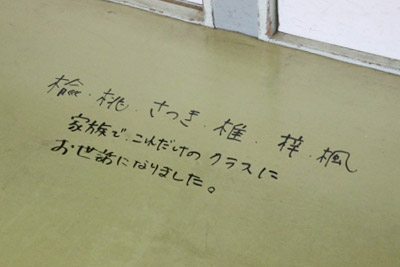 桧・桃・さつき・椎・梓・楓
家族で、これだけのクラスに
お世話になりました。